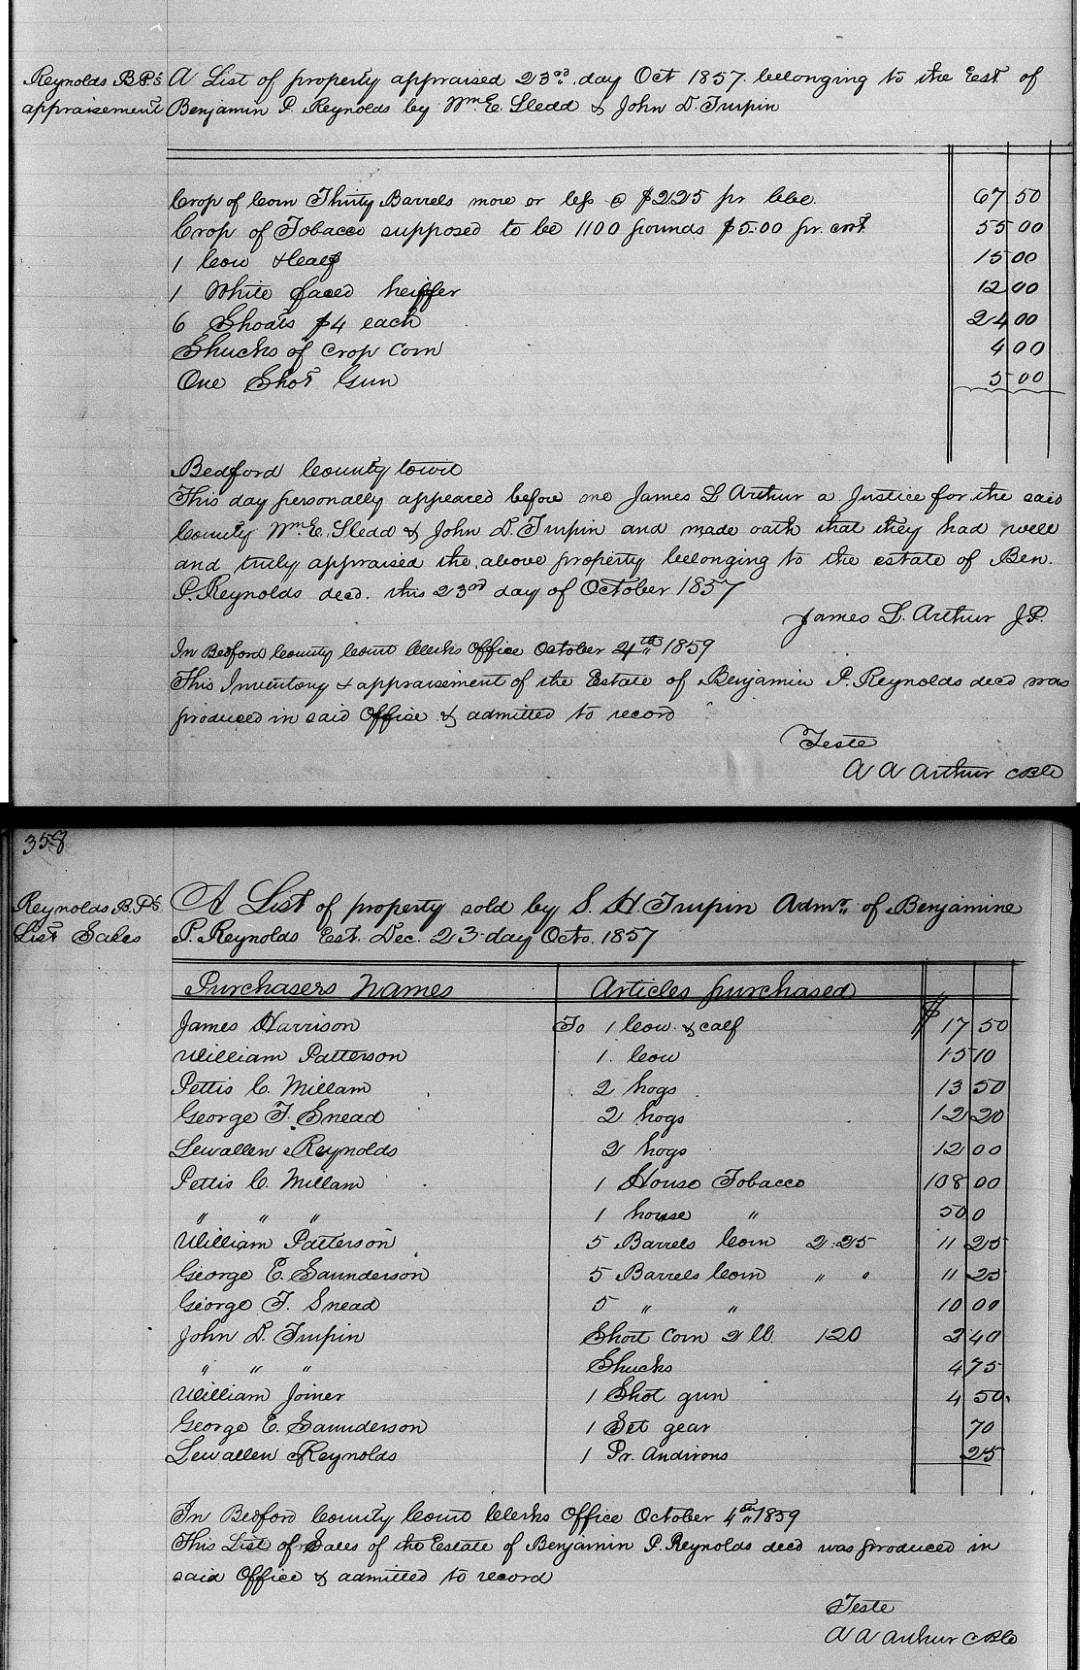 Reynolds B.P's A List of property appraised 23rd day Oct 1857 belonging to the Est of
appraisement Benjamin P. Reynolds by Wm E. Sledd & John D. Turpin
Crop of Corn Thirty Barrels more or less @ $2.25 pr bbl. 67 50
Crop of Tobacco supposed to be 1100 pounds $5.00 pr. cwt 55 00
1 Cow & Calf 15 00
1 White faced heiffer 12 00
6 Shoats $4 each 24 00
Shucks of Crop Corn 4 00
One Shot Gun 5 00
Bedford County towit
This day personally appeared before me James L. Arthur a Justice for the said
County Wm E. Sledd & John D. Turpin and made oath that they had well
and truly appraised the above property belonging to the estate of Ben.
P. Reynolds decd. this 23rd day of October 1857
James L. Arthur J.P.
In Bedford County Court Clerks Office October 4th 1859
This Inventory & appraisement of the Estate of Benjamin P. Reynolds decd was
produced in said Office & admitted to record
Teste
A A Arthur CBC
358
Reynolds B.P's A List of property sold by S. H. Turpin Admr. of Benjamine
List Sales P. Reynolds Est. Dec. 23 day Octo. 1857
Purchasers Names Articles purchased
James Harrison To 1 Cow & calf $ 17 50
William Patterson 1 Cow 15 10
Pettis C. Millam 2 hogs 13 50
George T. Snead 2 hogs 12 20
Lewallen Reynolds 2 hogs 12 00
Pettis C. Millam 1 House Tobacco 108 00
" " " 1 house " 50 0
William Patterson 5 Barrels Corn 2.25 11 25
George E. Saunderson 5 Barrels Corn " " 11 25
George T. Snead 5 " " 10 00
John D. Turpin Short Corn 2 lb. 120 2 40
" " " Shucks 4 75
William Joiner 1 Shot gun 4 50
George E. Saunderson 1 Set gear 70
Lewallen Reynolds 1 Pr. Andirons 25
In Bedford County Court Clerks Office October 4th 1859
This List of Sales of the Estate of Benjamin P. Reynolds decd was produced in
said Office & admitted to record
Teste
A A Arthur CBC